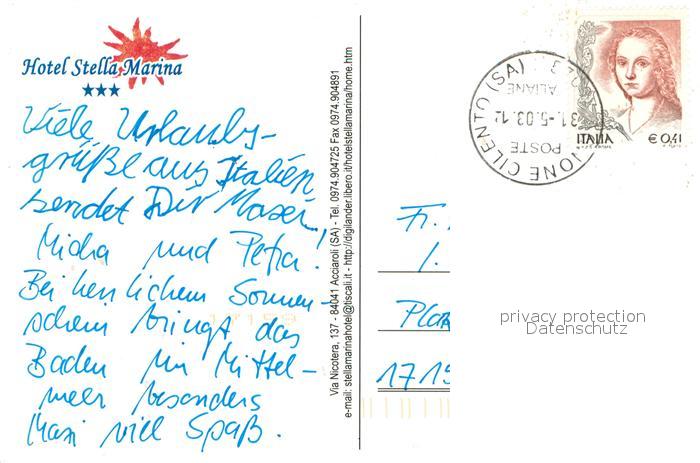 Hotel Stella Marina
★★★
Viele Urlaubs-
grüße aus Italien
sendet Dir Maxi,
Micha und Petra!
Bei herrlichem Sonnen-
schein bringt das
Baden im Mittel-
meer besonders
Maxi viel Spaß.
Via Nicotera, 137 - 84041 Acciaroli (SA) - Tel. 0974.904725 Fax 0974.904891
e-mail: stellamarinahotel@tiscali.it - http://digilander.libero.it/hotelstellamarina/home.htm
CILENTO (SA)
31.-5.03.12
POSTE
ITALIA €0,41
Fr.
1.
1719
privacy protection
Datenschutz